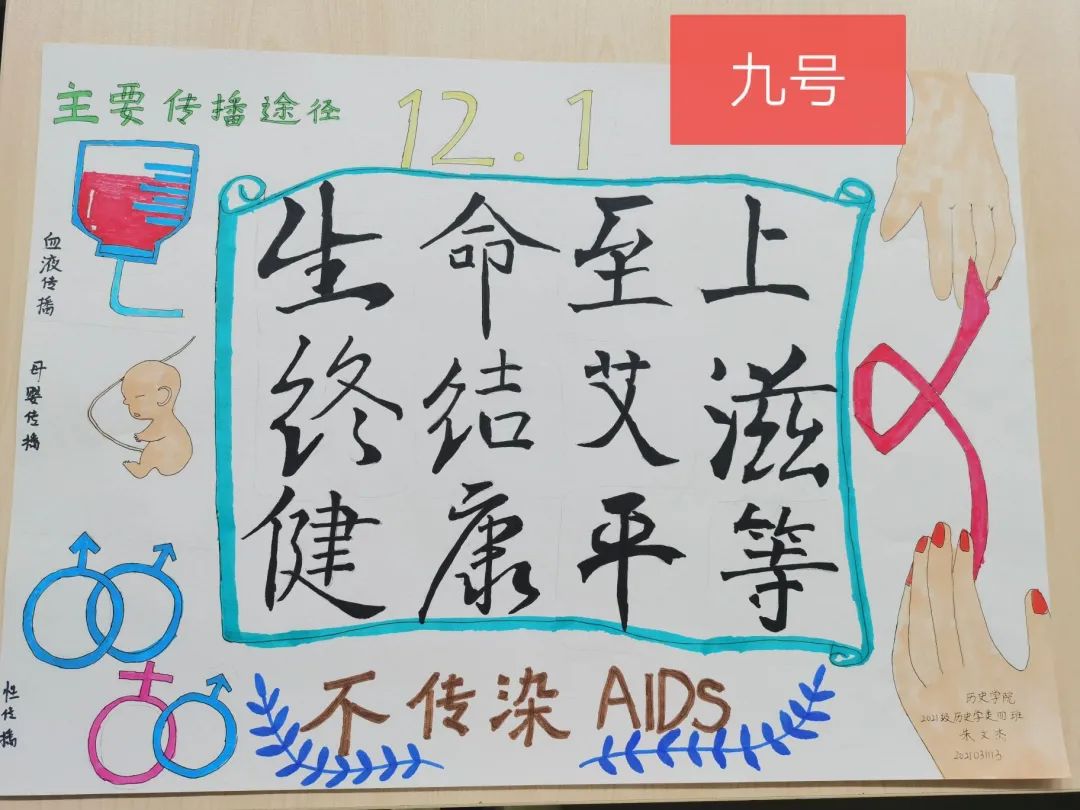 九号
主要传播途径
12.1
生命至上
终结艾滋
健康平等
血液传播
母婴传播
性传播
不传染 AIDS
历史学院
2021级历史学类四班
朱文杰
2021031113